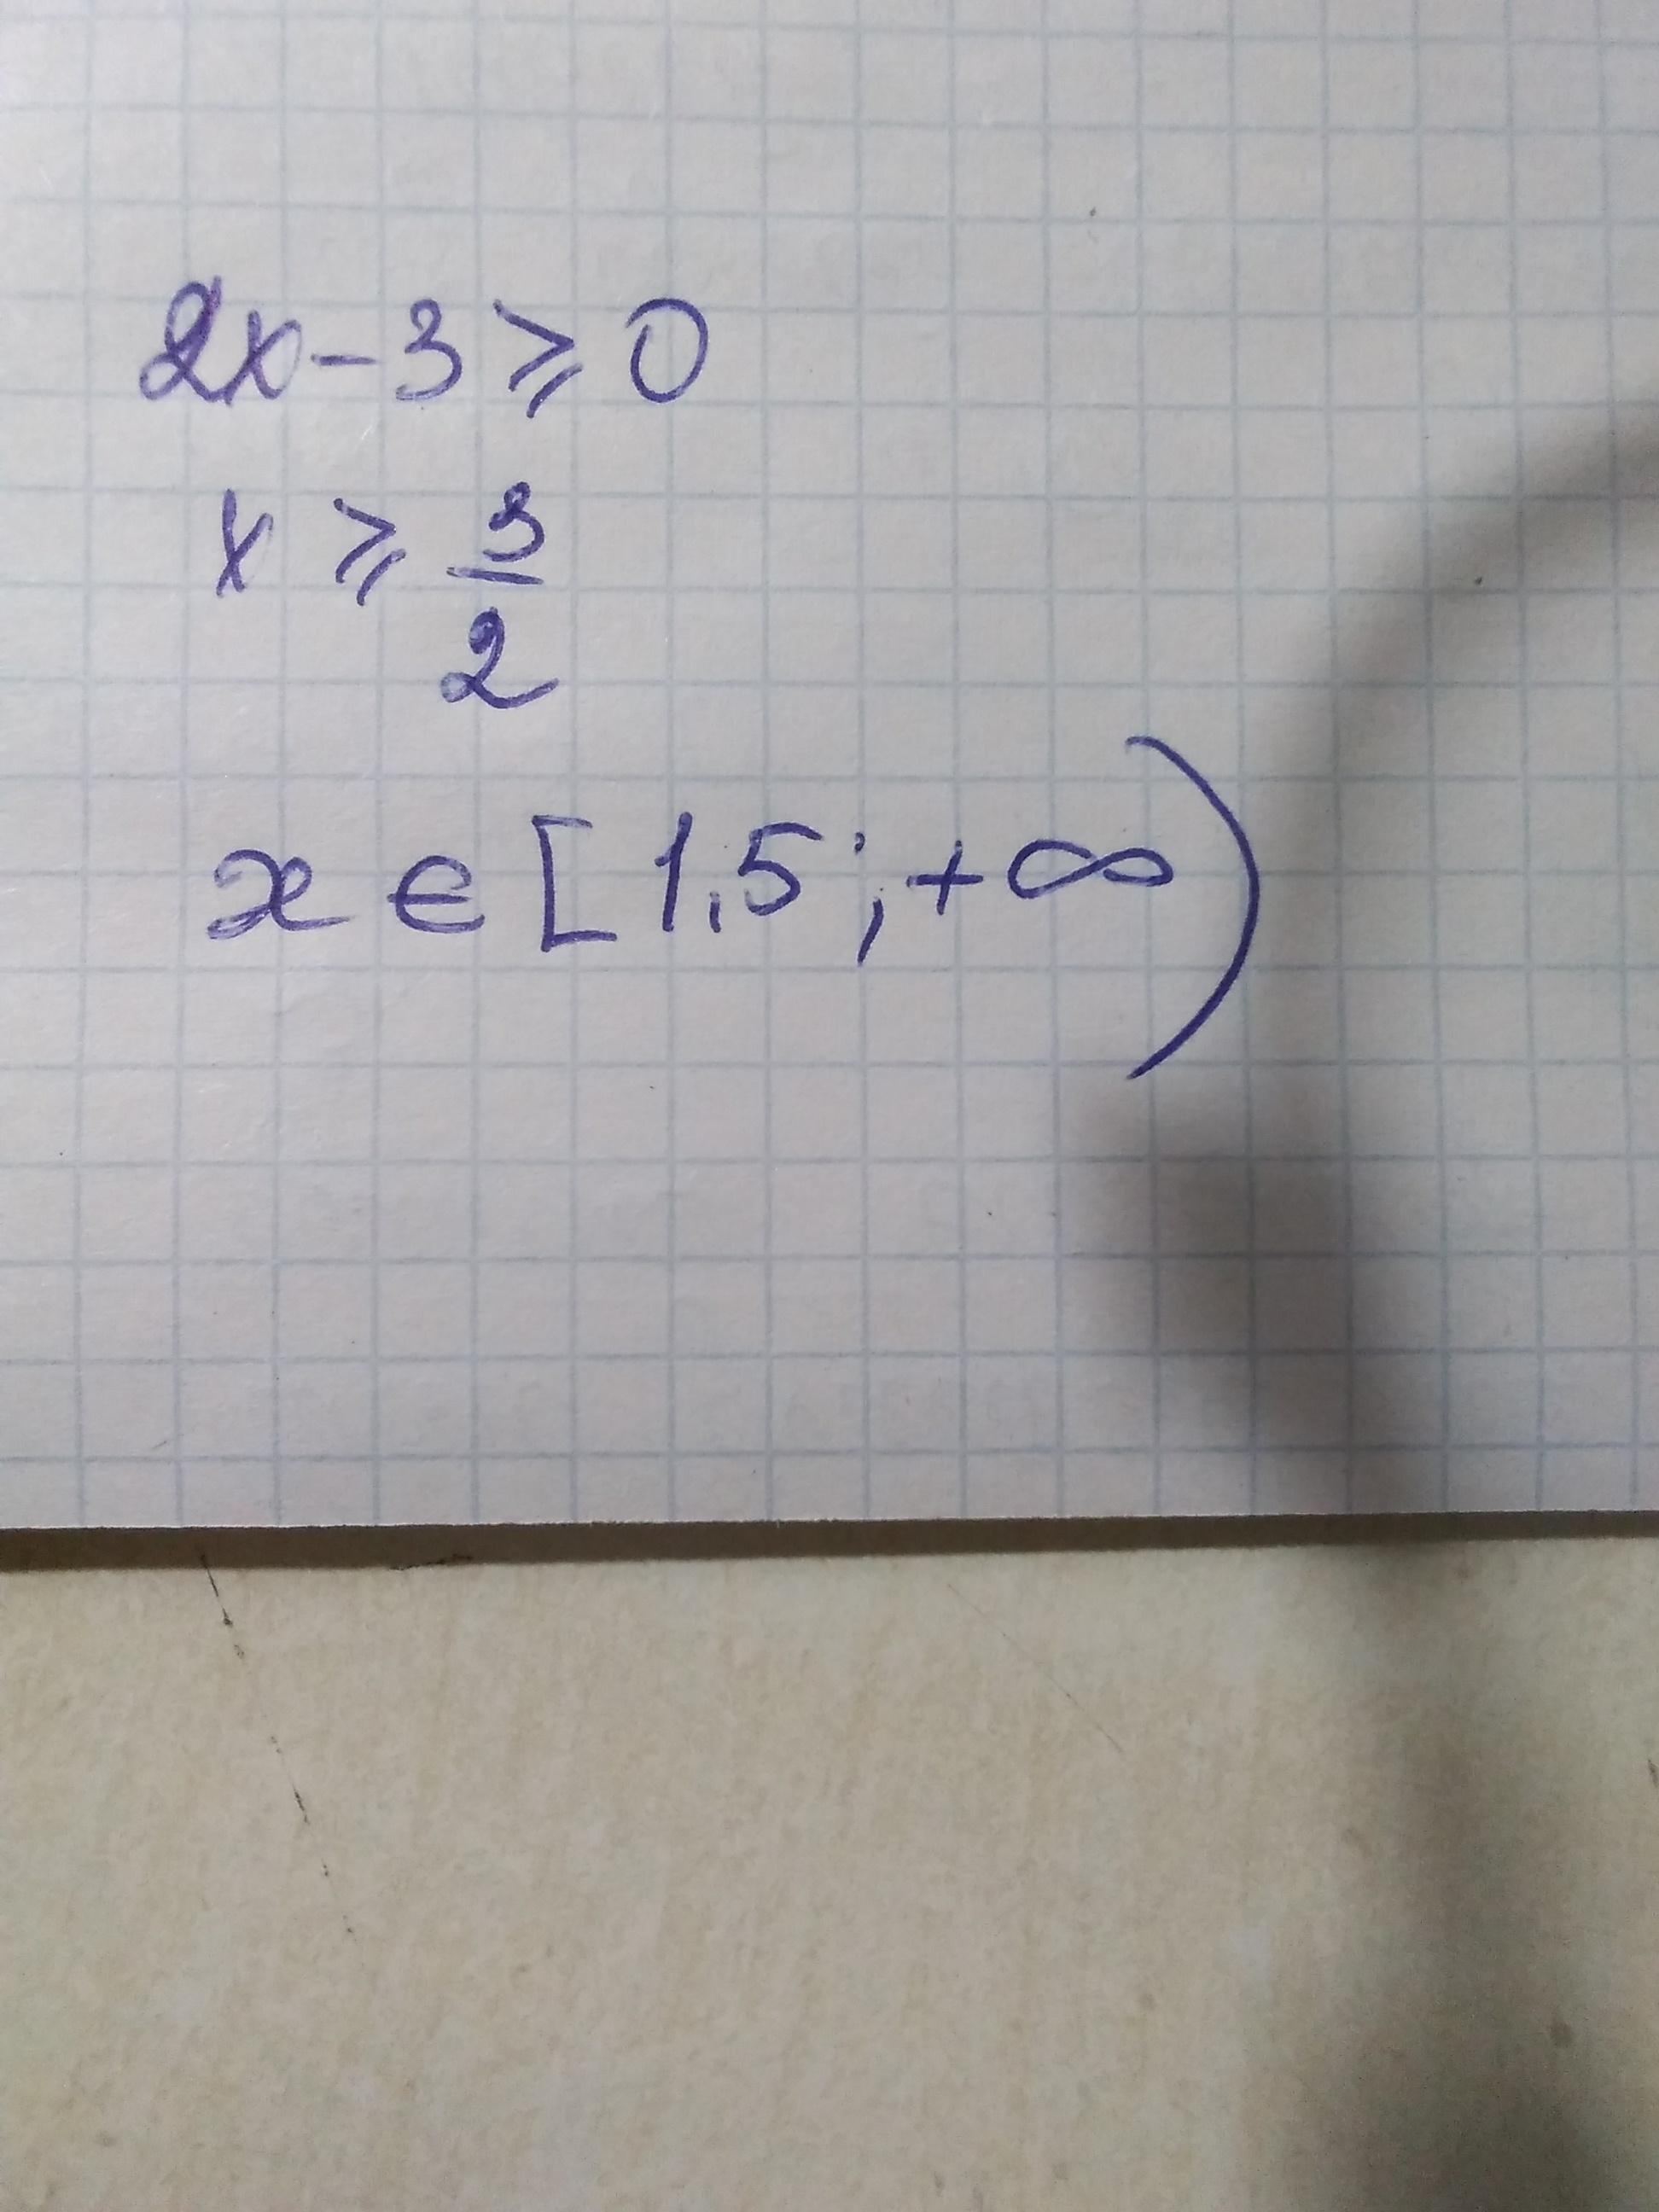 2x - 3 ⩾ 0
x ⩾ 3/2
x ∈ [1,5; +∞)